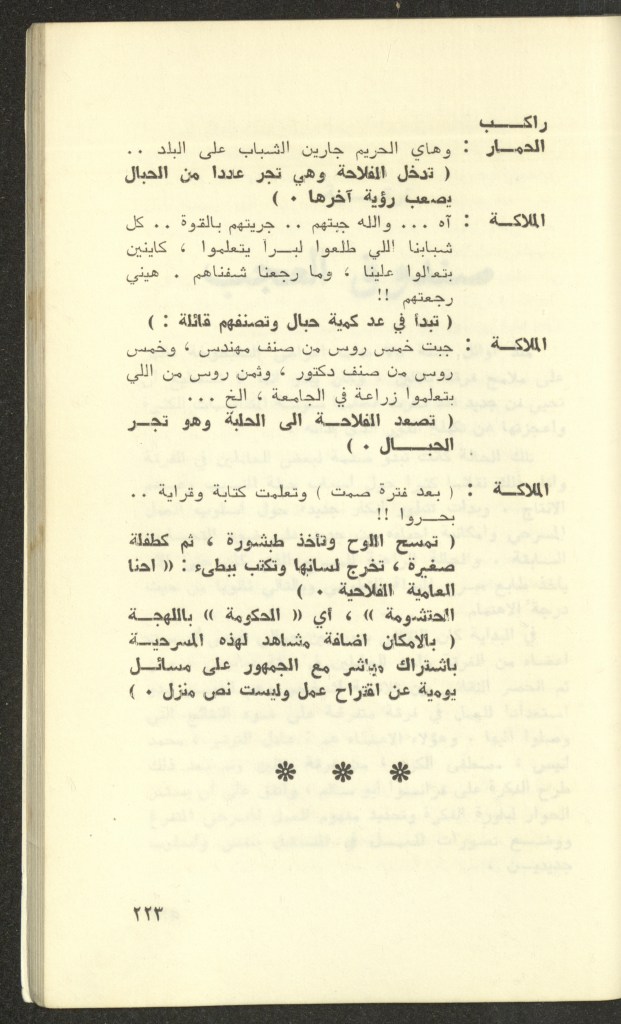 راكـــب
الحمــار : وهاي الحريم جارين الشباب على البلد ..
( تدخل الفلاحة وهي تجر عاددا من الحبال
يصعب رؤية آخرها . )
الملاكـة : آه ... والله جبتهم .. جريتهم بالقوة .. كل
شبابنا اللي طلعوا لبـرأ يتعلموا ، كاينين
بتعالوا علينا ، وما رجعنا شفناهم . هيني
رجعتهم !!
( تبدأ في عد كمية حبال وتصنفهم قائلة : )
الملاكـة : جيت خمس روس من صنف مهندس ، وخمس
روس من صنف دكتور ، وثمن روس من اللي
بتعلموا زراعة في الجامعة ، الخ ...
( تصعد الفلاحــة الى الحلبة وهو تجــر
الحبـــال . )
الملاكـة : ( بعد فترة صمت ) وتعلمت كتابة وقراية ..
بحــروا !!
( تمسح اللوح وتأخذ طبشورة ، ثم كطفلة
صغيرة ، تخرج لسانها وتكتب ببطىء : « احنا
العامية الفلاحية . )
الحتشومة » ، أي « الحكومة » باللهجــة
( بالامكان اضافة مشاهد لهذه المسرحيــة
باشتراك مباشر مع الجمهور على مسائــل
يومية عن اقتراح عمل وليست نص منزل . )
❋ ❋ ❋
٢٢٣